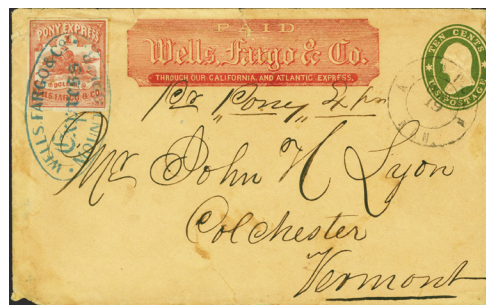 PONY EXPRESS
WELLS, FARGO & CO.
PAID
Wells, Fargo & Co.
THROUGH OUR CALIFORNIA AND ATLANTIC EXPRESS.
TEN CENTS
U.S. POSTAGE
WELLS FARGO & Co.
Pr "Pony" Ex
19
Mr John H Lyon
Colchester
Vermont